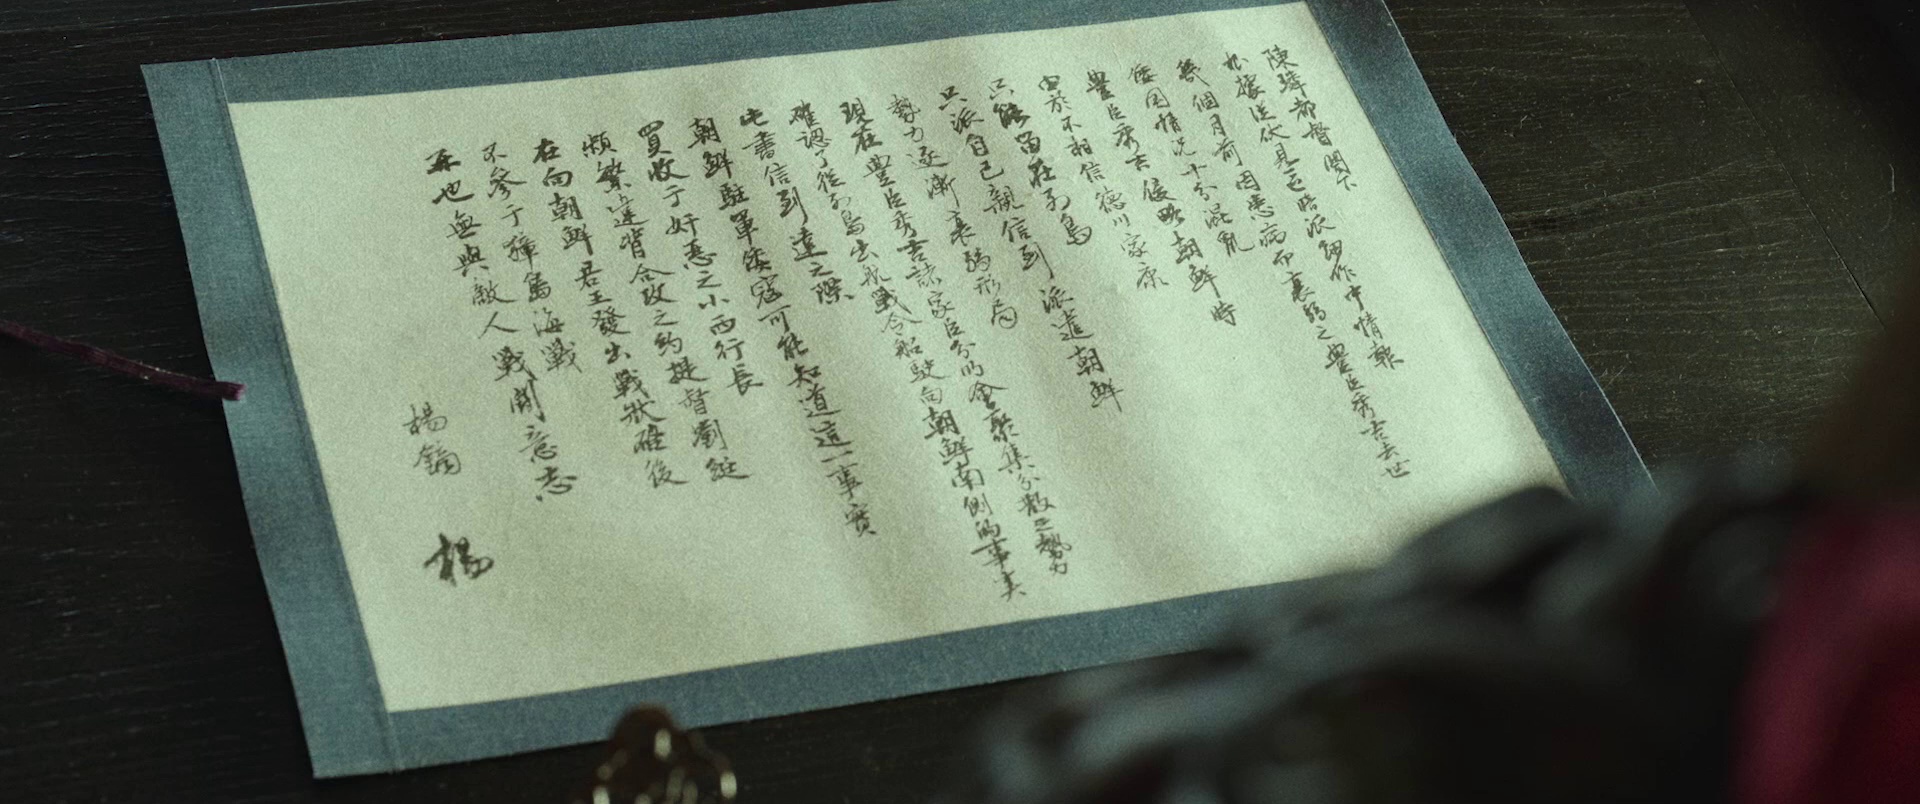 陳璘都督閣下
如據送伏見之暗派細作中情報
幾個月前因患病而衰弱之豊臣秀吉去世
倭国情況十分混亂
豊臣秀吉侵略朝鮮時
由於不相信德川家康
只能留在列島
只派自己親信到派遣朝鮮
勢力逐漸衰弱形局
現在豊臣秀吉諸家臣分明會聚集分散之勢力
確認了從列島出航戰令船駛向朝鮮南側的事实
此書信到達之際
朝鮮駐軍倭寇可能知道這一事實
買收于奸惡之小西行長
頻繁違背合攻之約提督劉綎
在向朝鮮君王發出戰狀確後
不參于獐島海戰
再也無與敵人戰鬪意志
楊鎬
楊